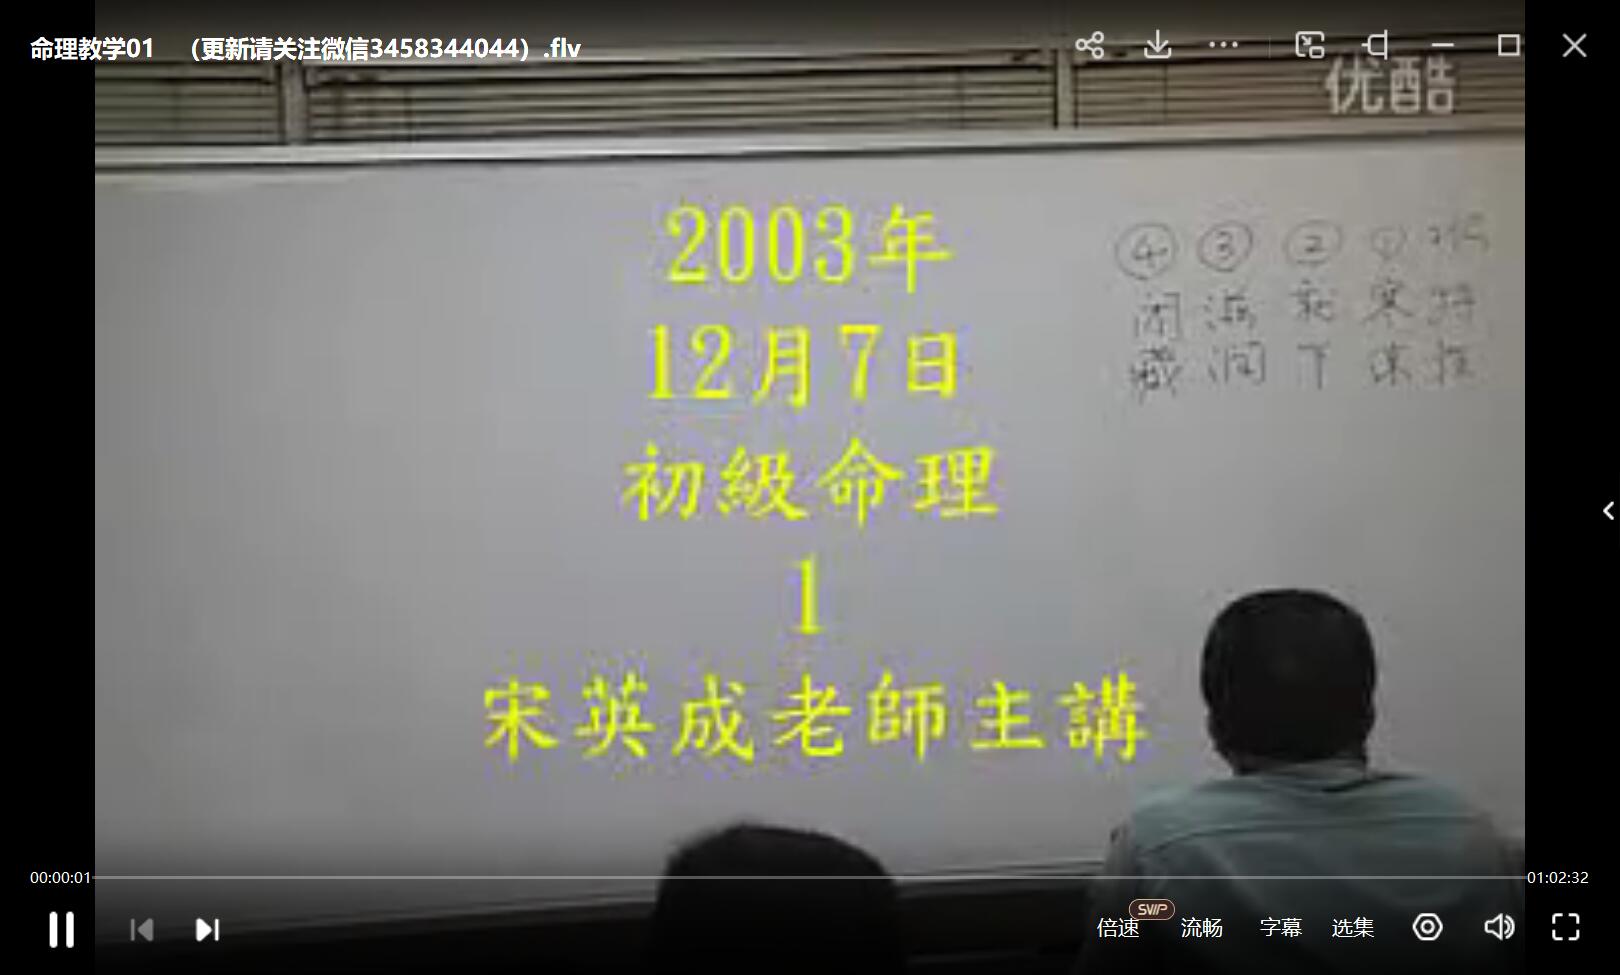 命理教学01 （更新请关注微信3458344044）.flv
优酷
2003年
12月7日
初級命理
1
宋英成老師主講
④ ③ ② ①
闭藏
滋润
就下
寒冻
特性
00:00:01
01:02:32
倍速
SVIP
流畅
字幕
选集